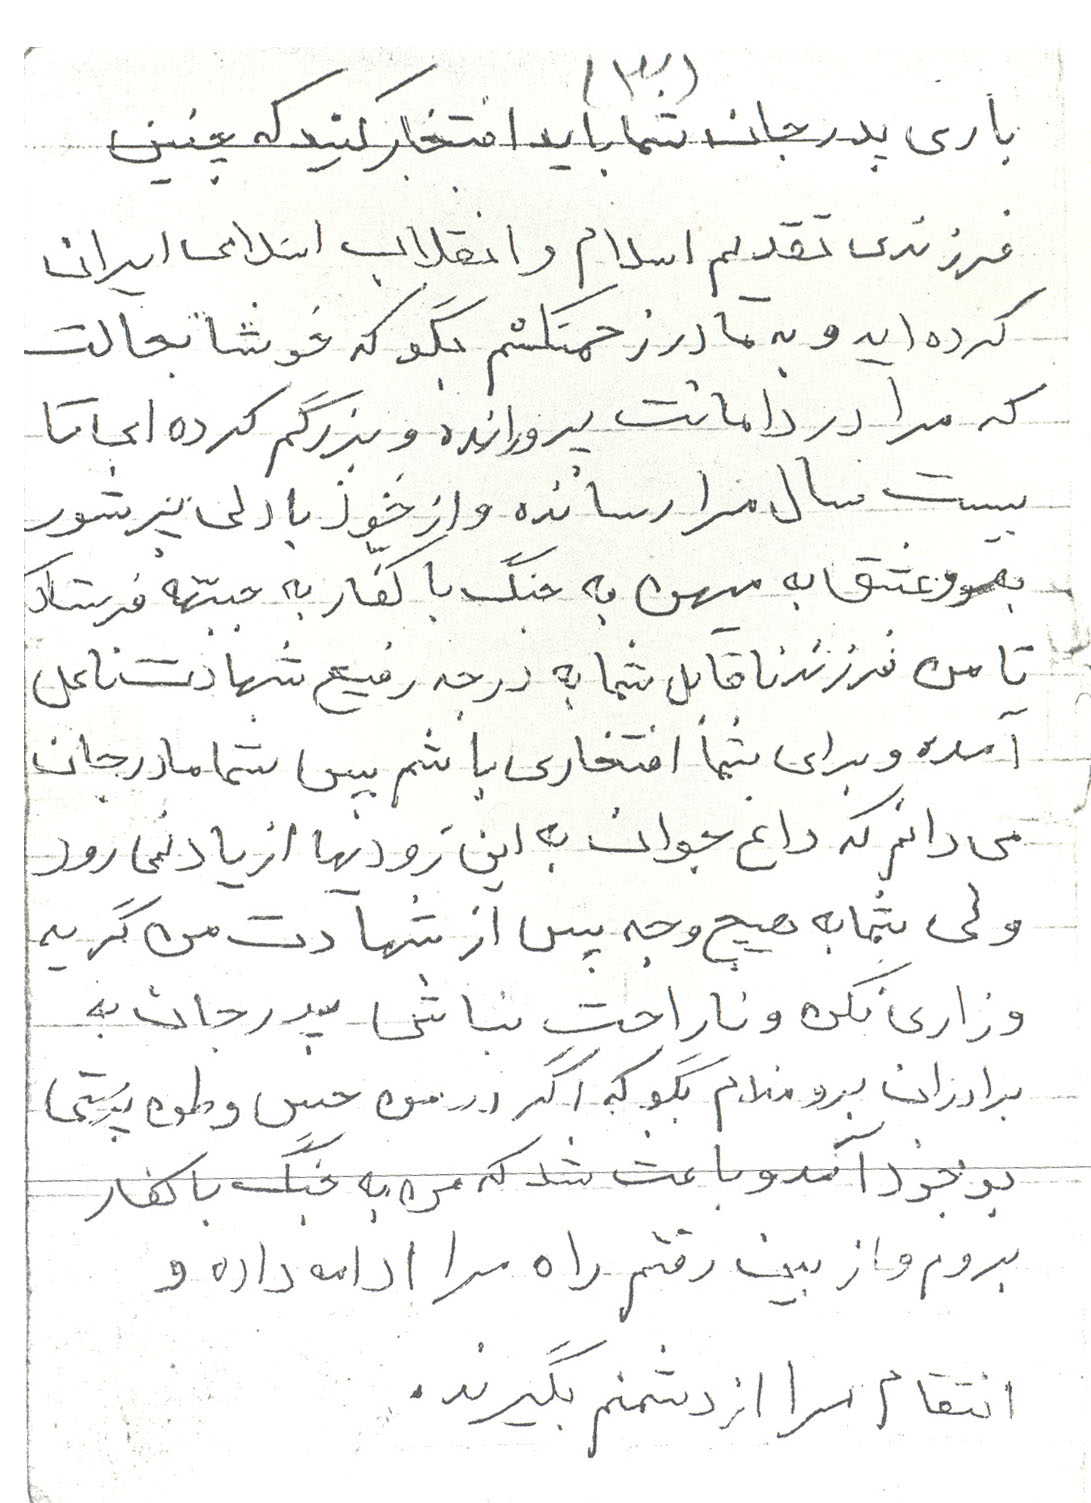 (۳)
باری پدر جان شما باید افتخار کنید که چنین
فرزندی تقدیم اسلام و انقلاب اسلامی ایران
کرده اید و به مادر زحمتکشم بگو که خوشا بحالت
که مرا در دامانت پرورانده و بزرگم کرده ای تا
بیست سال مرا رسانده و از خود با دلی پر شور
و عشق به میهن به جنگ با کفار به جبهه فرستاد
تا من فرزند ناقابل شما به درجه رفیع شهادت ناعل
آمده و برای شما افتخاری باشم پس شما مادر جان
می دانم که داغ جوان به این زودیها از یاد نمی رود
ولی شما به هیچ وجه پس از شهادت من گریه
و زاری نکن و ناراحت نباشی پدر جان به
برادران بگو که اگر در من حس وطن پرستی
بوجود آمد و باعث شد که من به جنگ با کفار
بروم و از بین رفتم راه مرا ادامه داده و
انتقام مرا از دشمنم بگیرند.